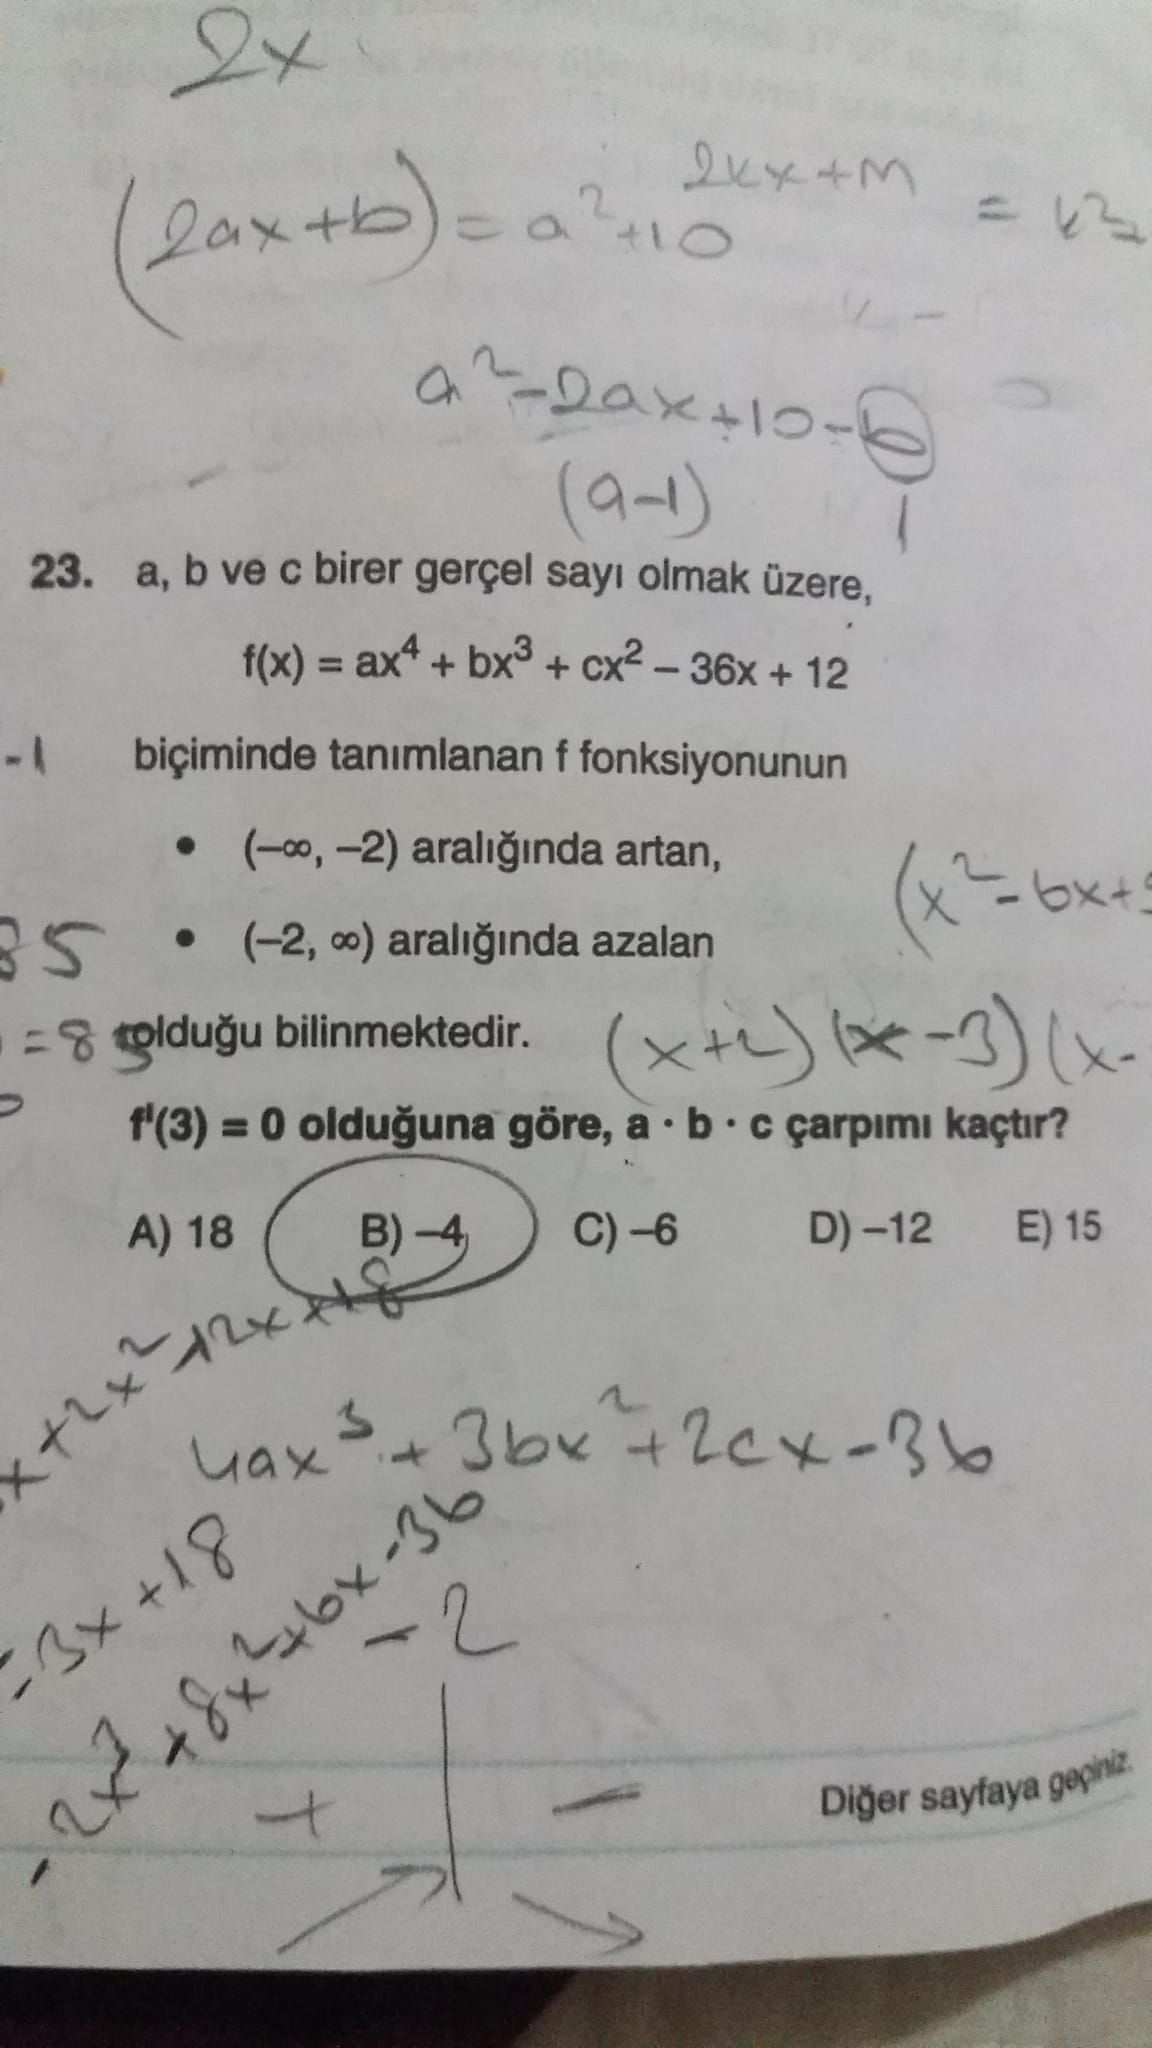 2x
(2ax+b) = a²+10
2kx+m
a²-2ax+10-b
(a-1)
1
23. a, b ve c birer gerçel sayı olmak üzere,
f(x) = ax⁴ + bx³ + cx² – 36x + 12
-1
biçiminde tanımlanan f fonksiyonunun
• (–∞, –2) aralığında artan,
(x²-6x+9
85
• (–2, ∞) aralığında azalan
=8
olduğu bilinmektedir.
(x+2)(x-3)(x-
f'(3) = 0 olduğuna göre, a · b · c çarpımı kaçtır?
A) 18 B) –4 C) –6 D) –12 E) 15
4ax³+3bx²+2cx-36
-3x+18
-2x³+8x²+6x-36
-2
+ -
Diğer sayfaya geçiniz.